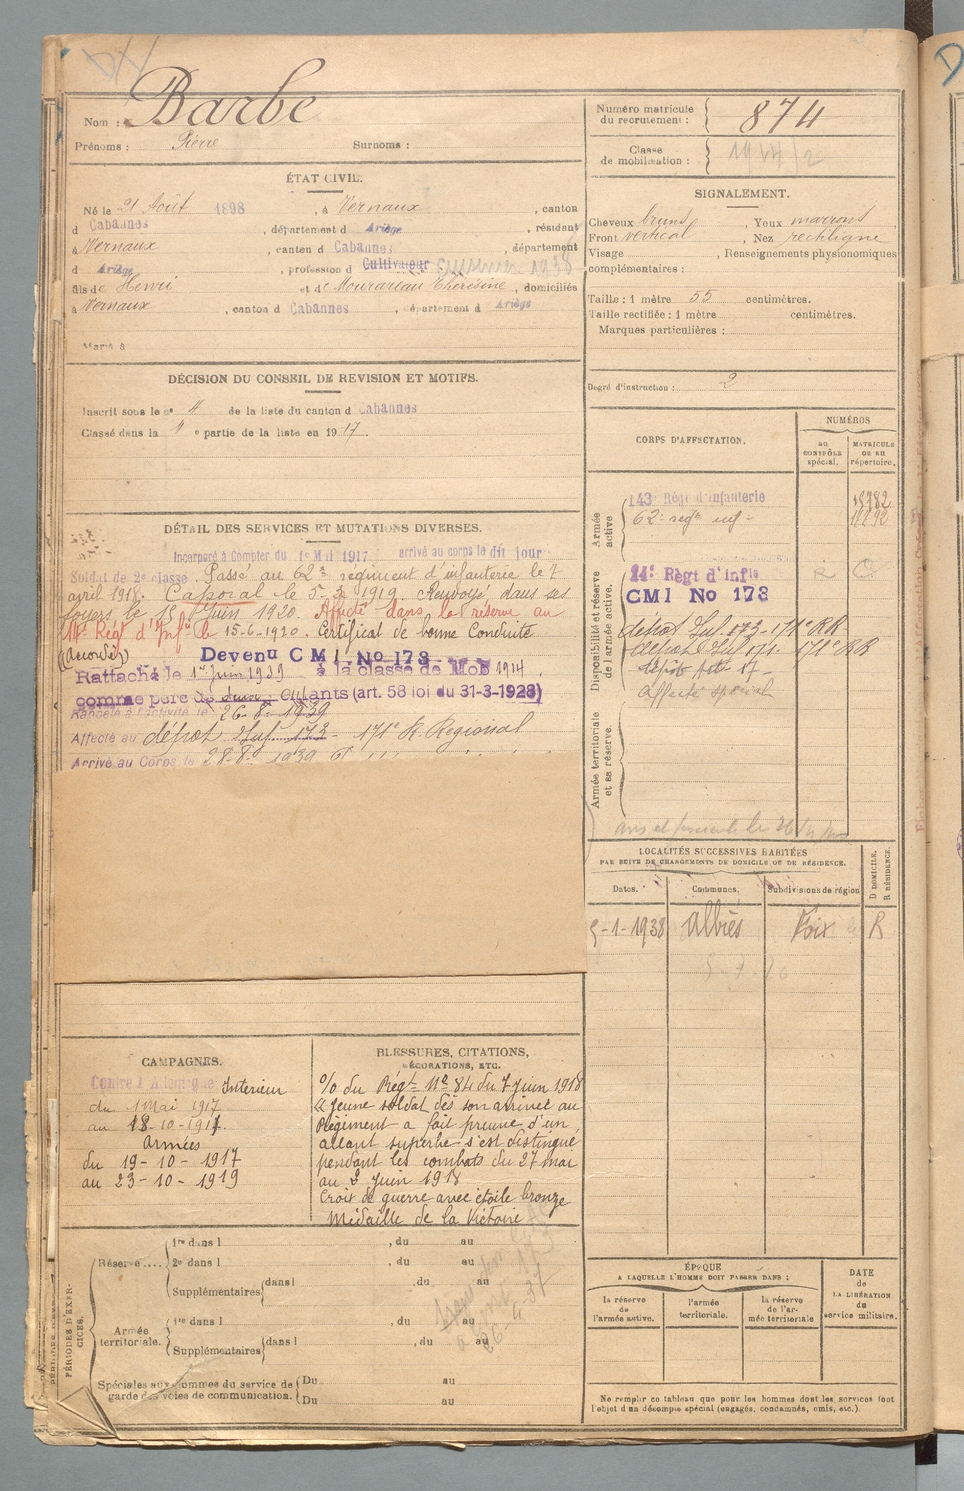 Nom : Barbe
Prénoms : Pierre Surnoms :
Numéro matricule du recrutement : 874
Classe de mobilisation :
ÉTAT CIVIL.
Né le 21 Août 1898, à Vernaux, canton
d Cabannes, département d Ariège, résidant
à Vernaux, canton d Cabannes, département
d Ariège, profession d Cultivateur 1938
fils de Henri et de Mourareau Thérésine, domiciliés
à Vernaux, canton d Cabannes, département d Ariège
Marié à
SIGNALEMENT.
Cheveux bruns, Yeux marrons,
Front vertical, Nez rectiligne
Visage, Renseignements physionomiques
complémentaires :
Taille : 1 mètre 55 centimètres.
Taille rectifiée : 1 mètre centimètres.
Marques particulières :
Degré d'instruction : 2
DÉCISION DU CONSEIL DE REVISION ET MOTIFS.
Inscrit sous le no 4 de la liste du canton d Cabannes
Classé dans la 1 e partie de la liste en 1917.
DÉTAIL DES SERVICES ET MUTATIONS DIVERSES.
Incorporé à Compter du 1er Mai 1917 arrivé au corps le dit jour
Soldat de 2e classe. Passé au 62e régiment d'infanterie le 7
avril 1918. Caporal le 5-3 1919. Renvoyé dans ses
foyers le 15 Juin 1920. Affecté dans le réserve au
14e Régt d'Infie le 15-6-1920. Certificat de bonne Conduite
(Accordé)
Devenu C M I. No 173
Rattaché le 1er juin 1939 à la classe de Mob 1914,
comme père de deux enfants (art. 58 loi du 31-3-1928)
Rappelé à l'activité le 26-8-1939
Affecté au dépôt Inf. 173 - 171e R. Régional
Arrivé au Corps le 28-8-1939
CORPS D'AFFECTATION.
NUMÉROS
AU CONTRÔLE spécial.
MATRICULE OU AU répertoire.
Armée active
143e Régt d'Infanterie 15782
62e regt inf - 11292
Disponibilité et réserve de l'armée active.
14e Régt d'Infie
CMI No 173
dépôt Inf. 173 - 171e RR
dépôt d'Inf 171 - 171e RR
affecté spécial
Armée territoriale et sa réserve.
LOCALITÉS SUCCESSIVES HABITÉES
PAR SUITE DE CHANGEMENTS DE DOMICILE OU DE RÉSIDENCE.
Dates. Communes. Subdivisions de région D DOMICILE. R RÉSIDENCE.
5-1-1938 Albiès Foix R
CAMPAGNES.
Contre l'Allemagne Intérieur
du 1 Mai 1917
au 18-10-1917.
Armées
du 19-10-1917
au 23-10-1919
BLESSURES, CITATIONS,
DÉCORATIONS, ETC.
o/o du Régt No 84 du 7 juin 1918
"Jeune soldat dès son arrivée au
Régiment a fait preuve d'un
allant superbe s'est distingué
pendant les combats du 27 mai
au 2 Juin 1918
Croix de guerre avec étoile bronze
Médaille de la Victoire
PÉRIODES D'EXERCICES.
Réserve....
1re dans l, du au
2e dans l, du au
Supplémentaires dans l, du au
Armée territoriale.
1re dans l, du au
Supplémentaires dans l, du au
Spéciales aux hommes du service de garde des voies de communication.
Du au
Du au
ÉPOQUE
A LAQUELLE L'HOMME DOIT PASSER DANS :
la réserve de l'armée active.
l'armée territoriale.
la réserve de l'armée territoriale
DATE de LA LIBÉRATION du service militaire.
Ne remplir ce tableau que pour les hommes dont les services font
l'objet d'un décompte spécial (engagés, condamnés, omis, etc.).